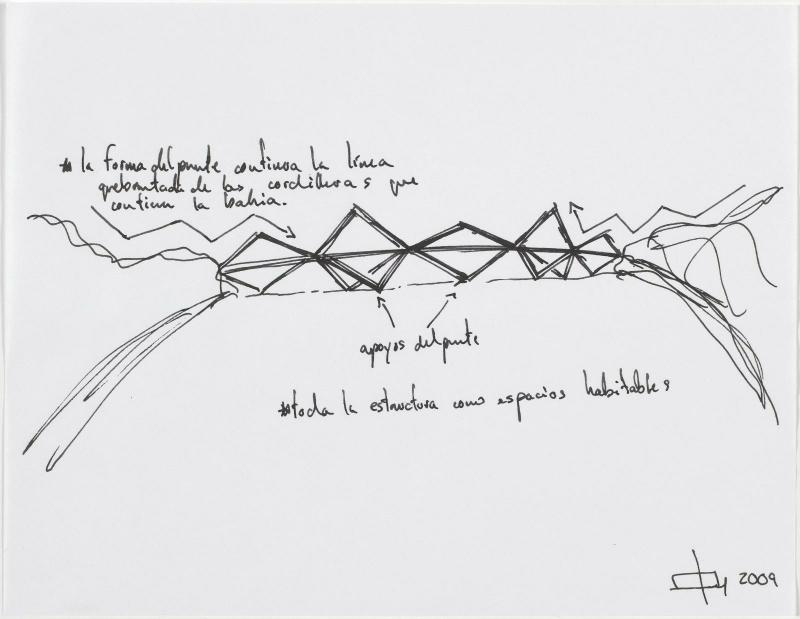 * la forma del puente continua la línea
quebrantada de las cordilleras que
continen la bahia.
apoyos del puente
* toda la estructura como espacios habitables
2009